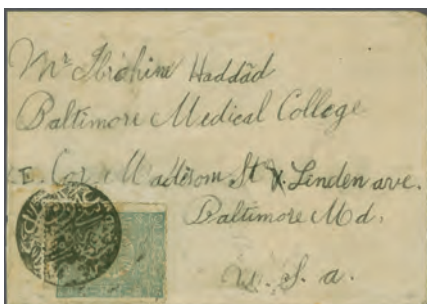 Mr Ibrahim Haddad
Baltimore Medical College
E. Cor. Madison St & Linden ave.
Baltimore Md.
U. S. a.